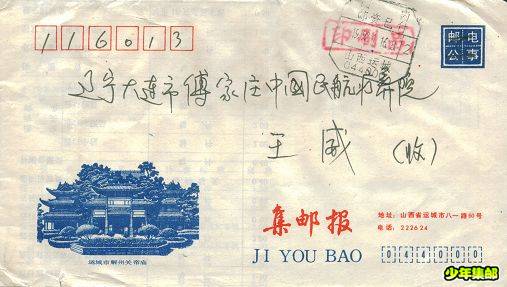 116013
邮电
公事
印刷品
山西运城
辽宁大连市傅家庄中国民航疗养院
王威(收)
运城市解州关帝庙
集邮报
JI YOU BAO
地址:山西省运城市八一路60号
电话:222624
044000
少年集邮